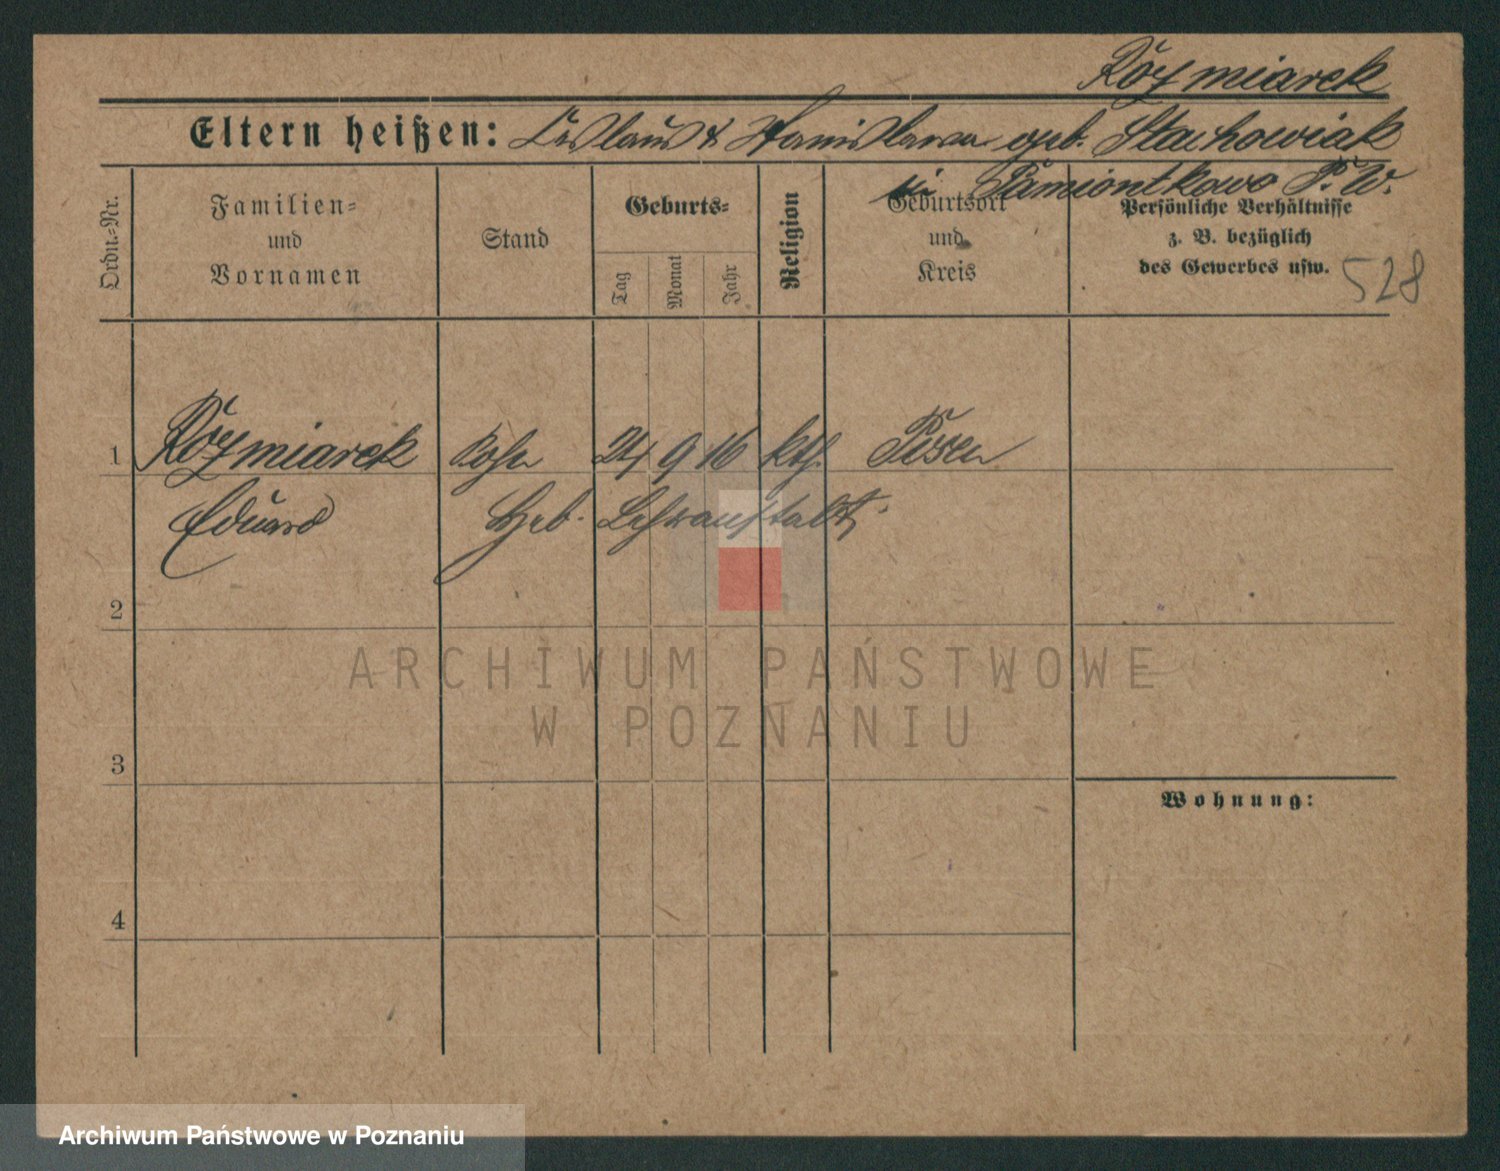 Rózmiarek
Eltern heißen: Ceslaus & Stanislawa geb. Stachowiak
in Pamiontkowo P. W.
Ordn.=Nr.
Familien=
und
Vornamen
Stand
Geburts=
Tag
Monat
Jahr
Religion
Geburtsort
und
Kreis
Persönliche Verhältnisse
z. B. bezüglich
des Gewerbes usw.
528
1 Rózmiarek Sohn 24 9 16 kth. Posen
Eduard Heb. Lehranstalt
2
3
4
Wohnung:
ARCHIWUM PAŃSTWOWE
W POZNANIU
Archiwum Państwowe w Poznaniu